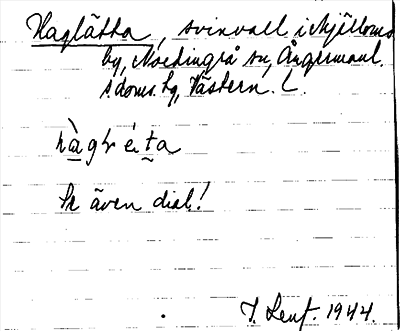 Haglätta, svinvall i Mjälloms
by, Nordingrå sn, Ångermanl.
s. doms. tg, Västern. l.
hàgḷéta
Se även dial!
J. Lenf. 1944.